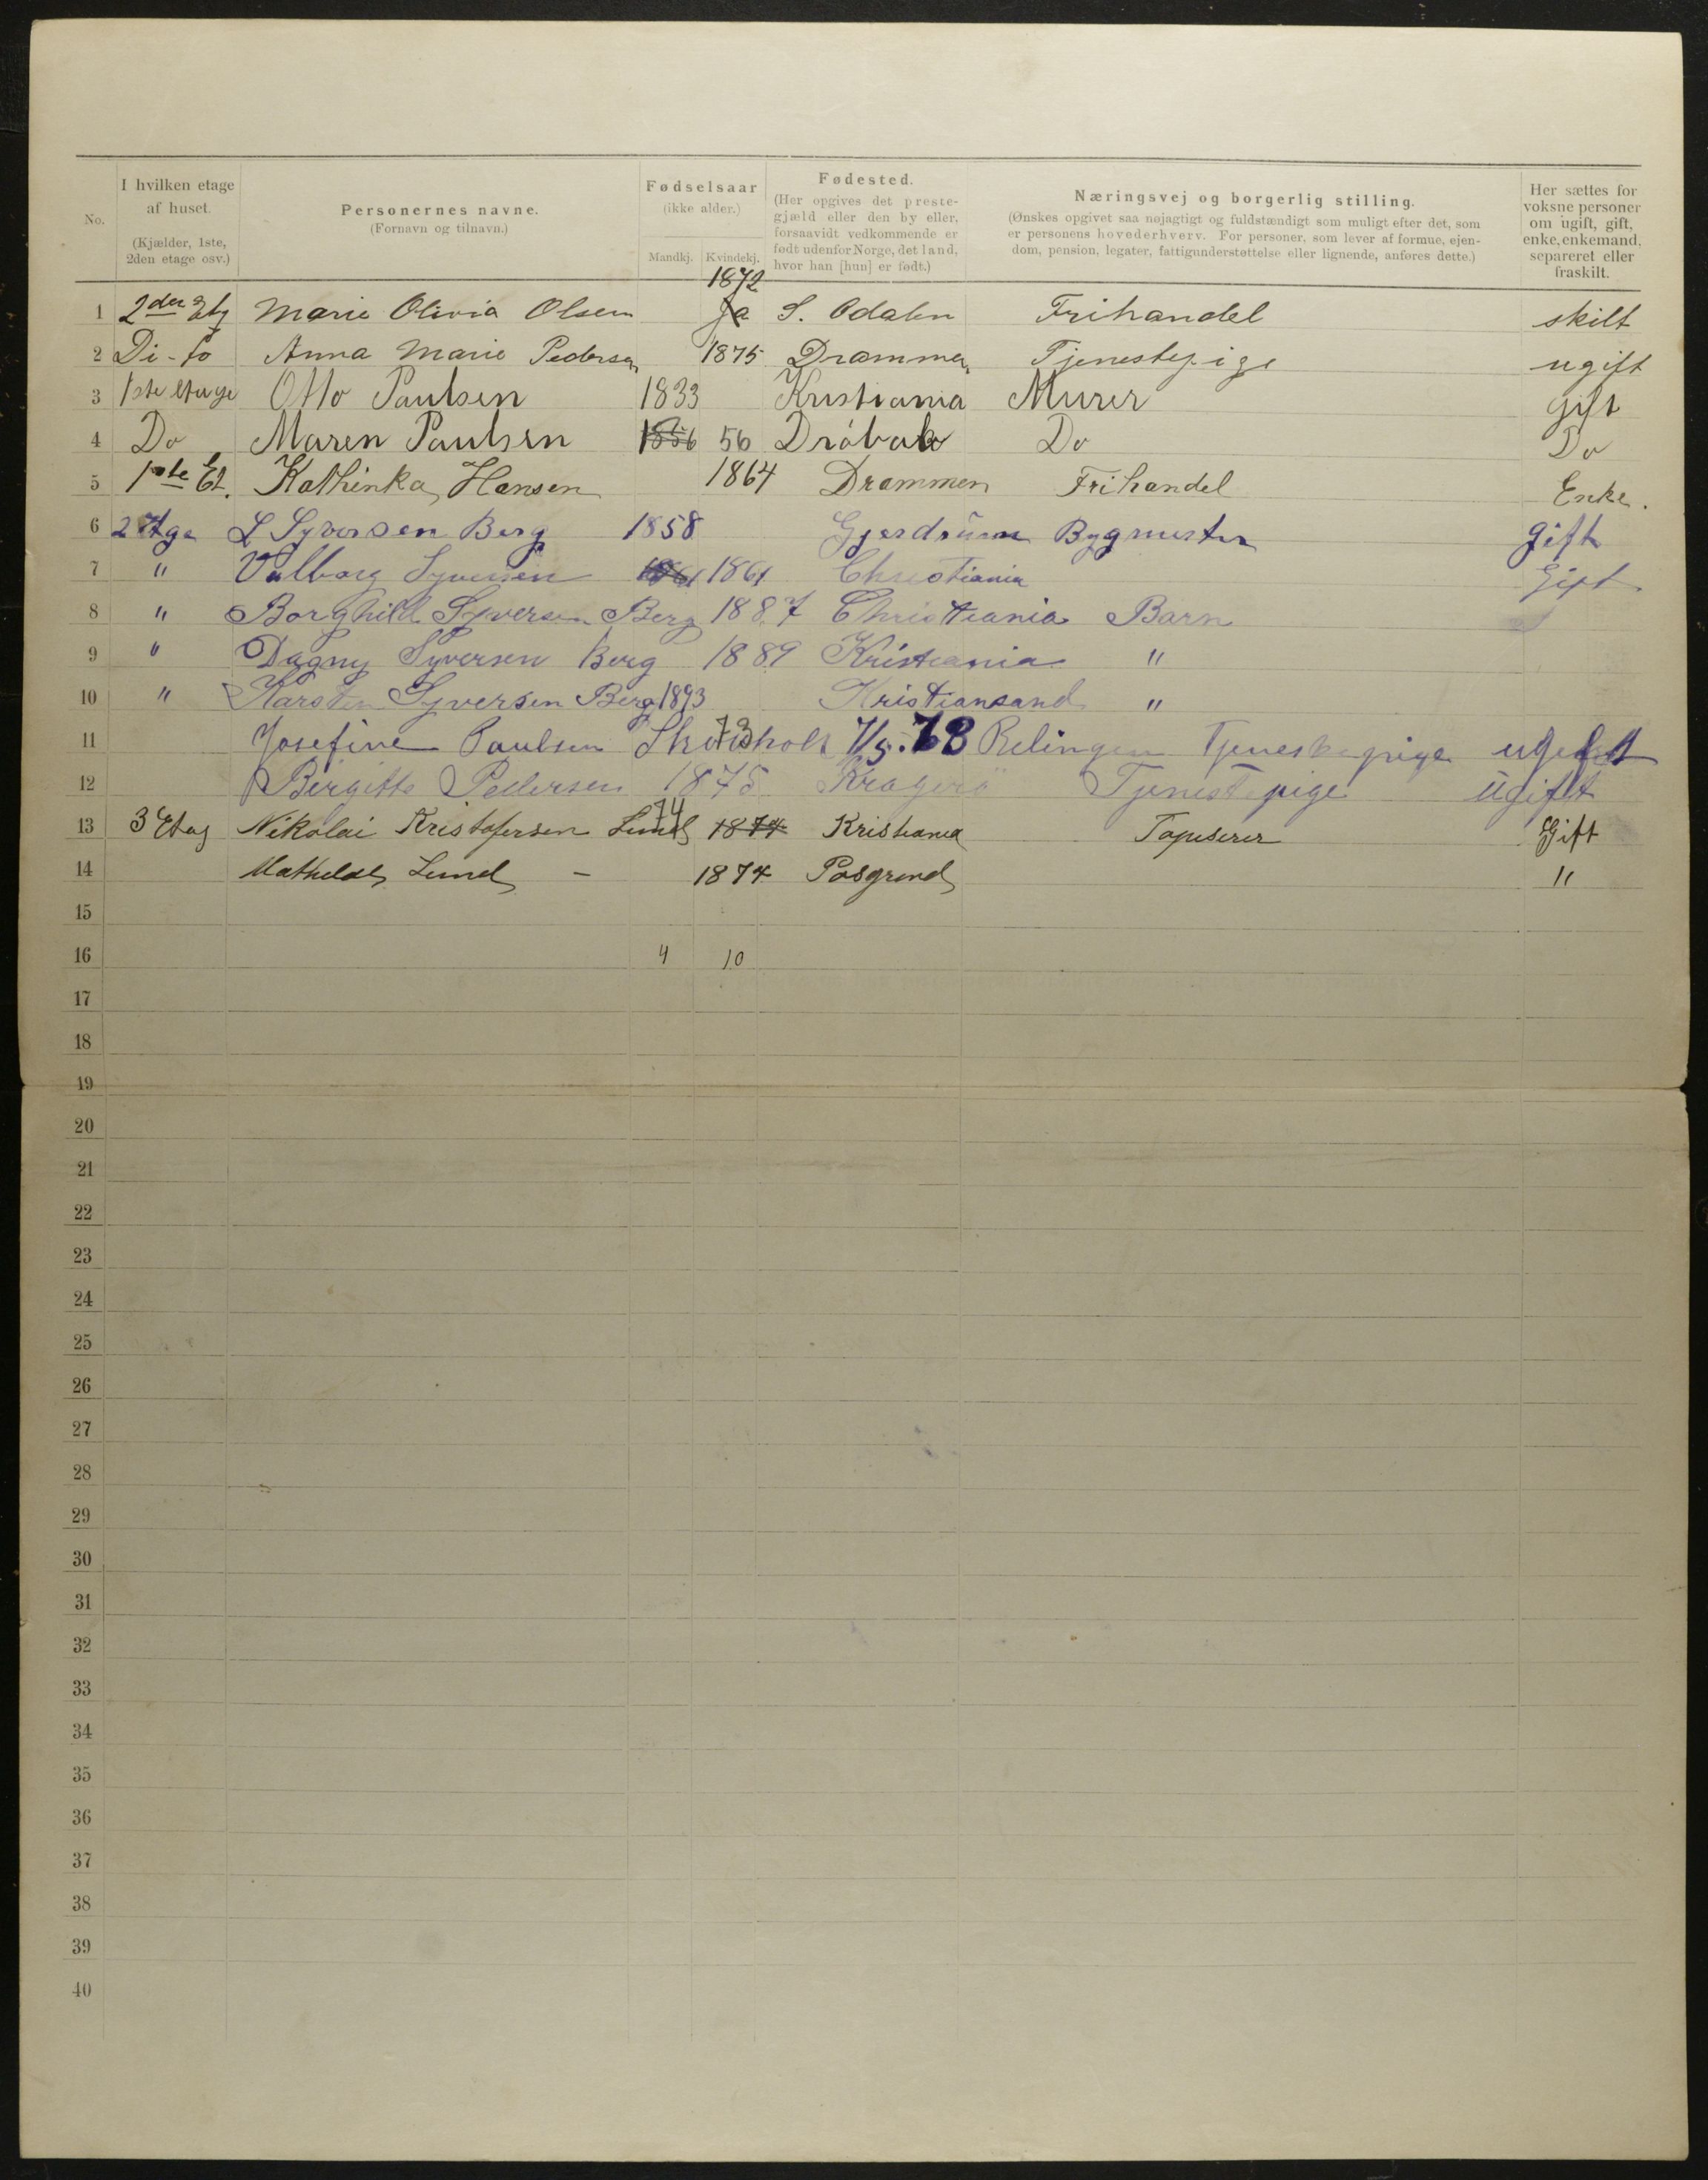 No.
I hvilken etage af huset. (Kjælder, 1ste, 2den etage osv.)
Personernes navne. (Fornavn og tilnavn.)
Fødselsaar (ikke alder.) Mandkj. Kvindekj.
Fødested. (Her opgives det prestegjæld eller den by eller, forsaavidt vedkommende er født udenfor Norge, det land, hvor han [hun] er født.)
Næringsvej og borgerlig stilling. (Ønskes opgivet saa nøjagtigt og fuldstændigt som muligt efter det, som er personens hovederhverv. For personer, som lever af formue, ejendom, pension, legater, fattigunderstøttelse eller lignende, anføres dette.)
Her sættes for voksne personer om ugift, gift, enke, enkemand, separeret eller fraskilt.
1 2den Etg Marie Olivia Olsen 1872 S. Odalen Frihandel skilt
2 Di-to Anna Marie Pedersen 1875 Drammen Tjenestepige ugift
3 1ste etage Otto Paulsen 1833 Kristiania Murer gift
4 Do Maren Paulsen 1856 56 Dröbak Do Do
5 1ste Et. Kathinka Hansen 1864 Drammen Frihandel Enke.
6 2 Etge L Syversen Berg 1858 Gjerdrum Bygmester gift
7 " Valborg Syversen 1861 1861 Christiania Gift
8 " Borghild Syversen Berg 1887 Christiania Barn
9 " Dagny Syversen Berg 1889 Kristiania "
10 " Karsten Syversen Berg 1893 Kristiansand "
11 Josefine Paulsen 73 7/5. 73 Relingen Tjenestepige ugift
12 Birgitte Pedersen 1875 Kragerö Tjenestepige Ugift
13 3 Etag Nikolai Kristofersen Lund 74 1874 Kristiania Tapeserer Gift
14 Mathilde Lund – 1874 Posgrund "
15
16 4 10
17
18
19
20
21
22
23
24
25
26
27
28
29
30
31
32
33
34
35
36
37
38
39
40